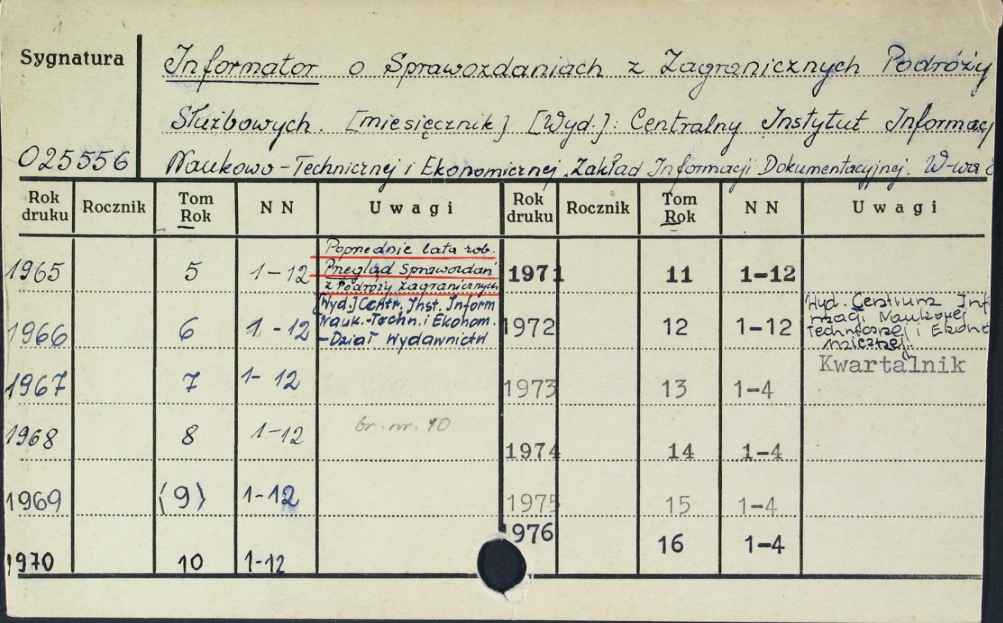 Sygnatura
Informator o Sprawozdaniach z Zagranicznych Podróży
Służbowych. [miesięcznik] [Wyd.]: Centralny Instytut Informacj
025556 Naukowo-Technicznej i Ekonomicznej. Zakład Informacji Dokumentacyjnej. W-wa
Rok druku Rocznik Tom Rok N N Uwagi Rok druku Rocznik Tom Rok N N Uwagi
Poprzednie lata zob.
1965 5 1-12 Przegląd Sprawozdań 1971 11 1-12
z Podróży Zagranicznych
[Wyd.] Centr. Inst. Inform Wyd. Centrum Inf
1966 6 1-12 Nauk.-Techn. i Ekonom. 1972 12 1-12 rmacji Naukowej
- Dział Wydawnictw Technicznej i Ekono
micznej.
Kwartalnik
1967 7 1-12 1973 13 1-4
1968 8 1-12 br. nr. 10 1974 14 1-4
1969 (9) 1-12 1975 15 1-4
1970 10 1-12 1976 16 1-4